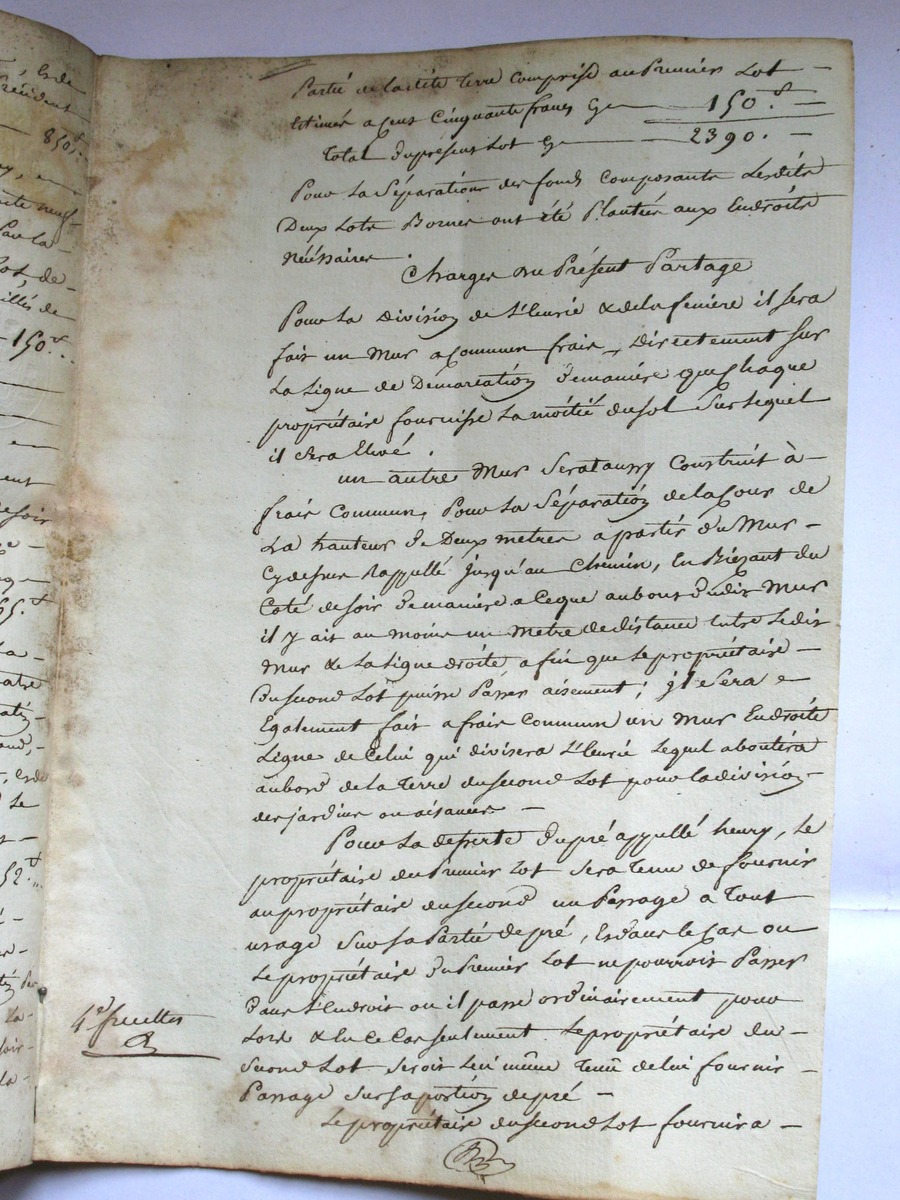 Partie de ladite terre comprise au Premier Lot —
Estimée a cent Cinquante francs Cy — 150.f —
Total du présent Lot Cy — 2390. —
Pour La Séparation des fonds composants Lesdits
Deux Lots Bornes ont été Plantées aux Endroits
nécéssaires.
Charges du Présent Partage
Pour La Division de L'Ecurie & de la feniere il sera
fait un Mur a Commun frais, Directement sur
La Ligne de Démarcation de maniére que chaque
propriétaire fournisse La moitié du sol Sur Lequel
il sera Elevé.
un autre Mur Sera taussy Construit à
frais Commun, Pour La Séparation de la Cour de
La hauteur de Deux metres a partir du Mur
Cy dessus Rappellé jusqu'au Chemin, En Biezant du
Coté de soir de maniére a ce que au bout dudit Mur
il y ait au moins un Metre de distance Entre Ledit
Mur & La Ligne droite afin que Le propriétaire —
du second Lot puisse Passer aisement; jl Sera
Egalement fait a frais Commun un Mur En droite
Ligne de Celui qui divisera L'Ecurie Lequel aboutira
au bord de la Terre du second Lot pour la division
des jardins ou aisances —
Pour La desserte du pré appellé henry, Le
propriétaire du Premier Lot Sera tenu de fournir
au propriétaire du second un Passage a Tout
usage Sur sa Partie de pré, Et dans le Cas ou
Le propriétaire du Premier Lot ne pourroit Passer
dans L'Endroit ou il passe ordinairement pour
Lors & En ce Cas seulement Le propriétaire du —
Second Lot seroit Lui même Tenu de lui fournir —
Passage Sur sa portion de pré —
Le propriétaire du second Lot fournira —
850.f
150.f
52.f